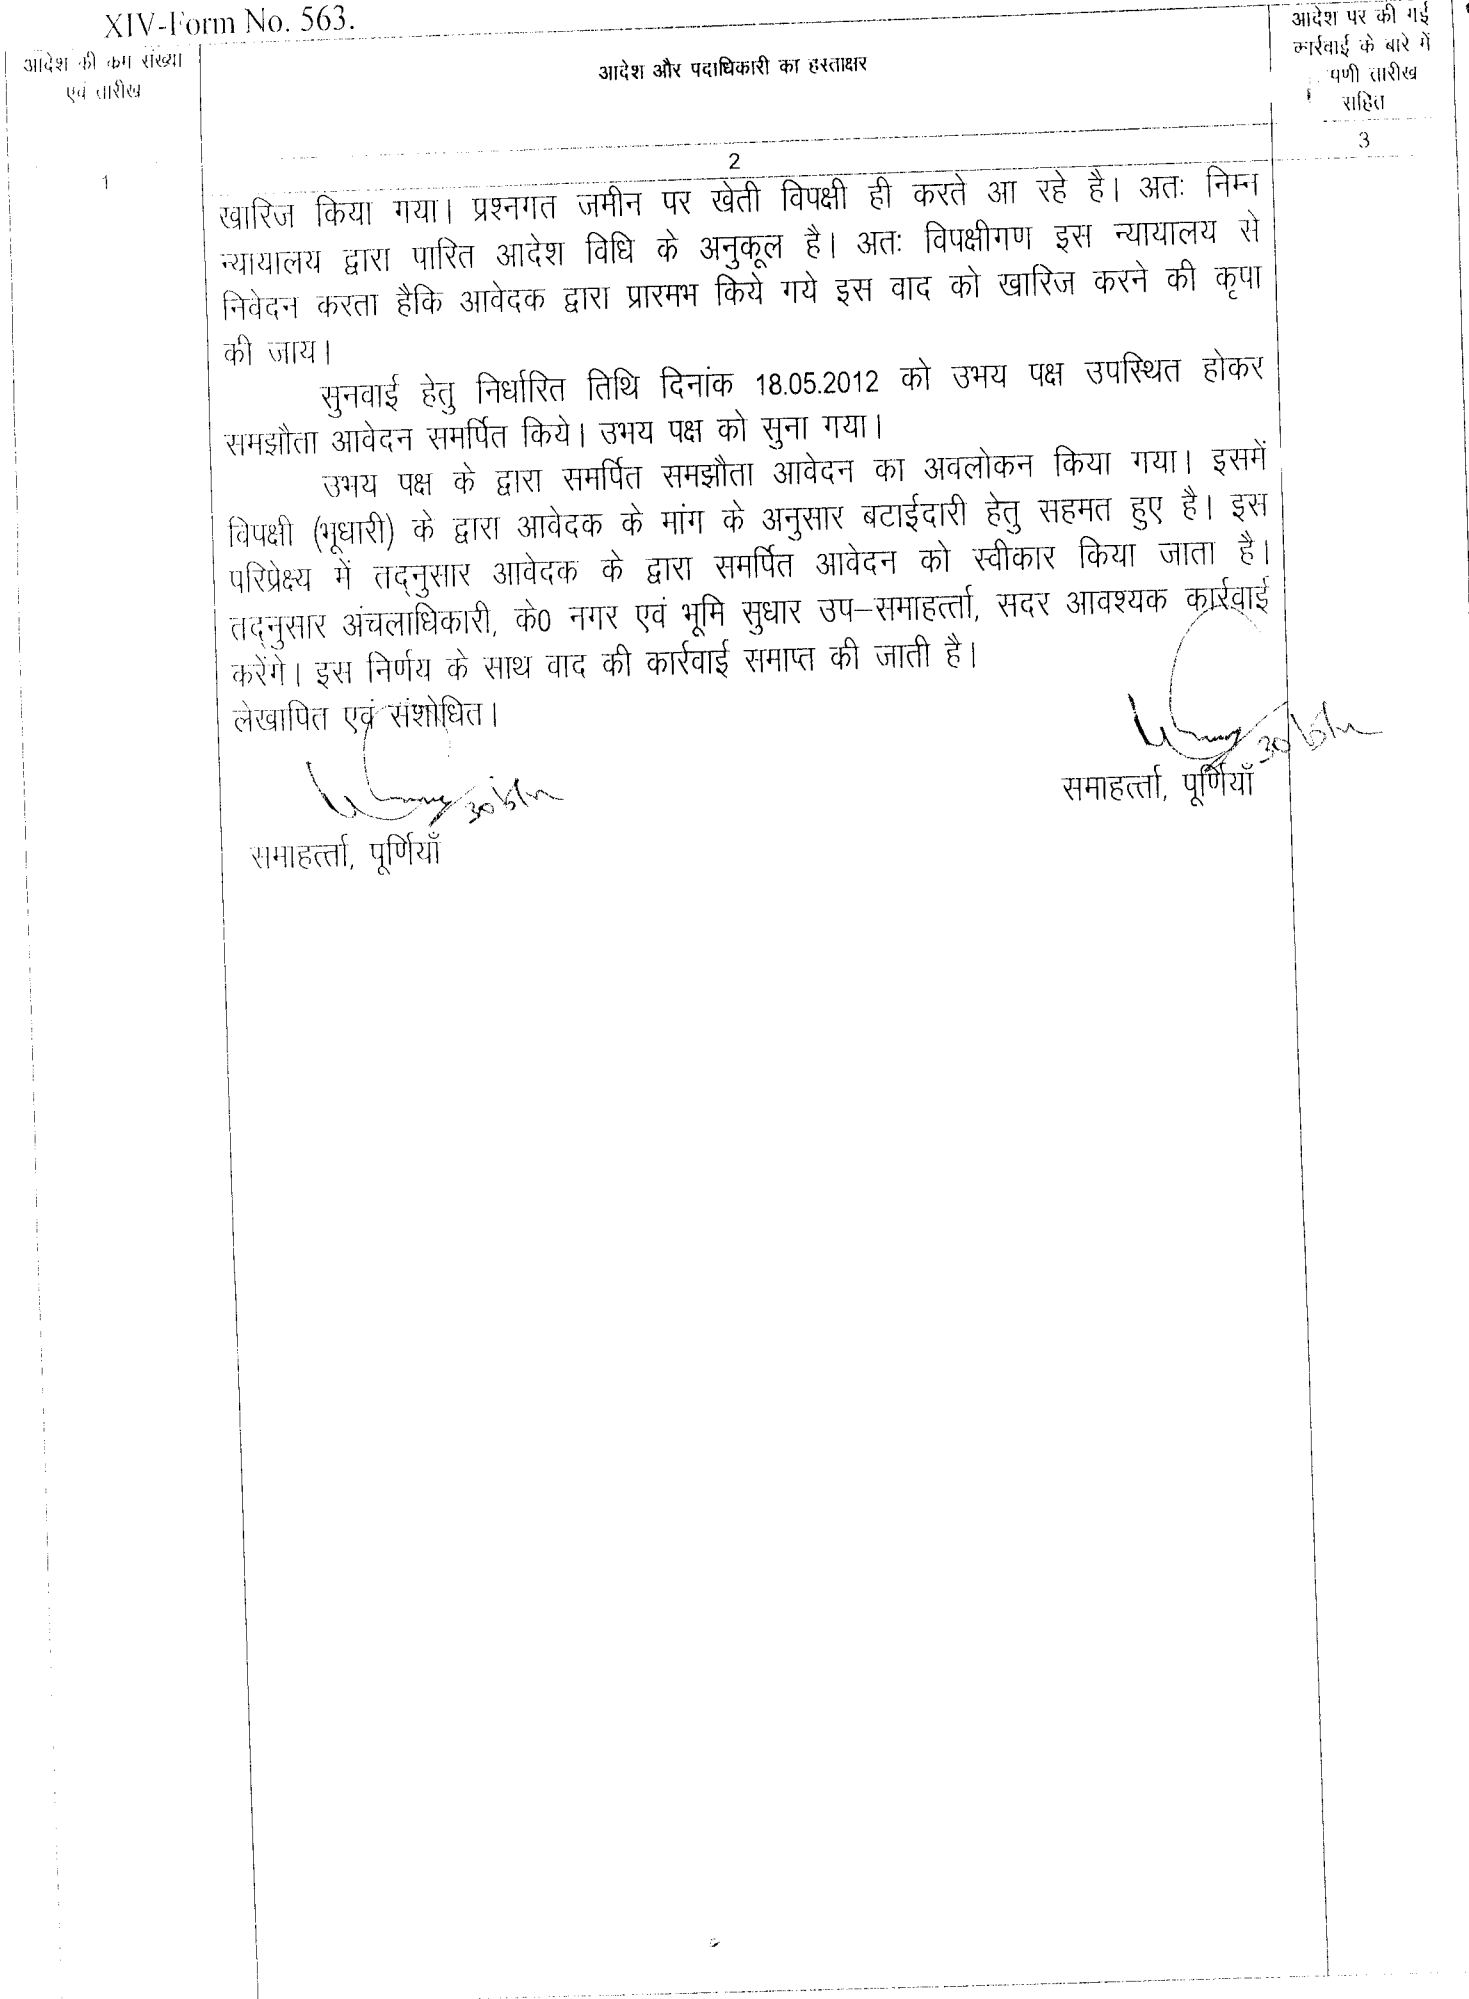 XIV-Form No. 563.
आदेश की कम संख्या
एवं तारीख
आदेश और पदाधिकारी का हस्ताक्षर
आदेश पर की गई
कार्रवाई के बारे में
पणी तारीख
सहित
1
2
3
खारिज किया गया। प्रश्नगत जमीन पर खेती विपक्षी ही करते आ रहे है। अतः निम्न
न्यायालय द्वारा पारित आदेश विधि के अनुकूल है। अतः विपक्षीगण इस न्यायालय से
निवेदन करता हैकि आवेदक द्वारा प्रारमभ किये गये इस वाद को खारिज करने की कृपा
की जाय।
सुनवाई हेतु निर्धारित तिथि दिनांक 18.05.2012 को उभय पक्ष उपस्थित होकर
समझौता आवेदन समर्पित किये। उभय पक्ष को सुना गया।
उभय पक्ष के द्वारा समर्पित समझौता आवेदन का अवलोकन किया गया। इसमें
विपक्षी (भूधारी) के द्वारा आवेदक के मांग के अनुसार बटाईदारी हेतु सहमत हुए है। इस
परिप्रेक्ष्य में तद्नुसार आवेदक के द्वारा समर्पित आवेदन को स्वीकार किया जाता है।
तद्नुसार अंचलाधिकारी, के0 नगर एवं भूमि सुधार उप–समाहर्त्ता, सदर आवश्यक कार्रवाई
करेंगे। इस निर्णय के साथ वाद की कार्रवाई समाप्त की जाती है।
लेखापित एवं संशोधित।
समाहर्त्ता, पूर्णियाँ
समाहर्त्ता, पूर्णियाँ